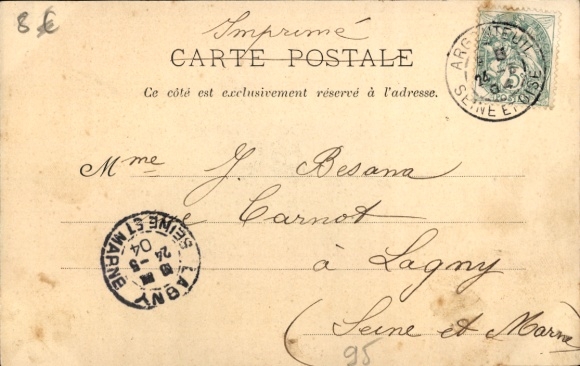 8 €
Imprimé
CARTE POSTALE
Ce côté est exclusivement réservé à l'adresse.
ARGENTEUIL
24
SEINE ET OISE
Mme J. Besana
Carnot
à Lagny
(Seine et Marne
LAGNY
24 -5
04
SEINE ET MARNE
95